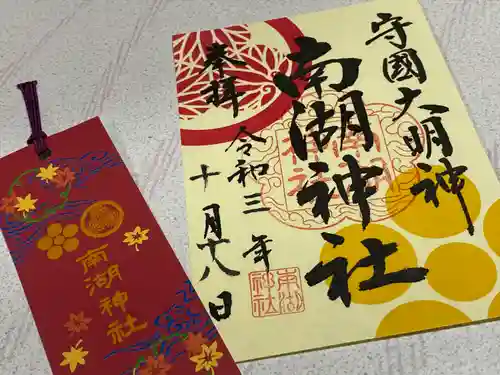 守國大明神
南湖神社
奉拝
令和三年
十月十八日
南湖
神社
南湖神社